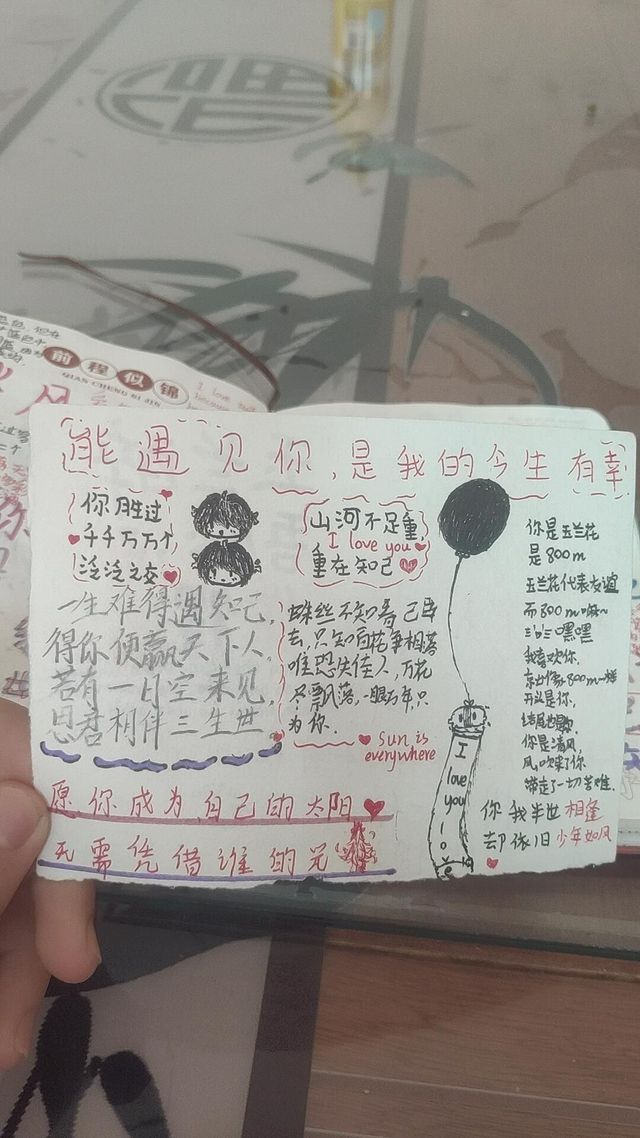 前程似锦
QIAN CHENG SI JIN
能遇见你,是我的今生有幸
你胜过
千千万万个
泛泛之交
山河不足重,
I love you
重在知己
一生难得遇知己,
得你便赢天下人,
若有一日空来见,
思君相伴三生世
蛛丝不知春已
去,只知百花争相落
唯恐失佳人,万花
尽飘落,一眼万年只
为你.
Sun is
everywhere
愿你成为自己的太阳
无需凭借谁的光
I
love
you
你是玉兰花
是800m
玉兰花代表友谊
而800m嘛~
三的嘿嘿
我喜欢你,
就像800m一样
开头是你,
结尾也是
你是清风,
风吹来了你
带走了一切苦难.
你我半世相逢
却依旧少年如风